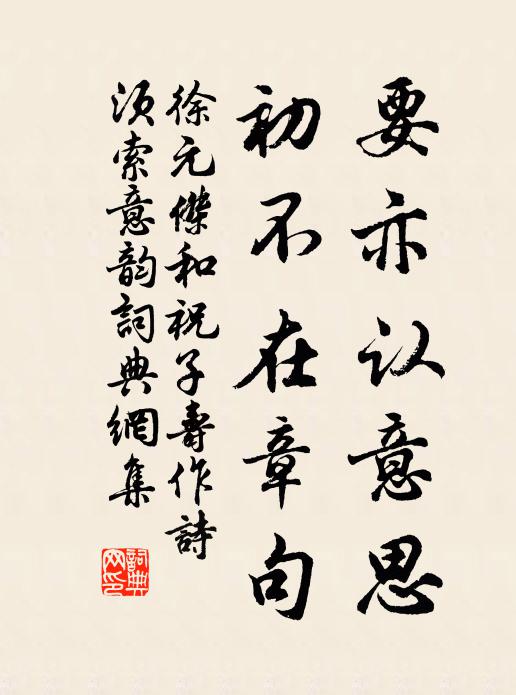 要亦认意思
初不在章句
徐元傑和祝子壽作詩
須索意韵詞典網集
詞典
网印